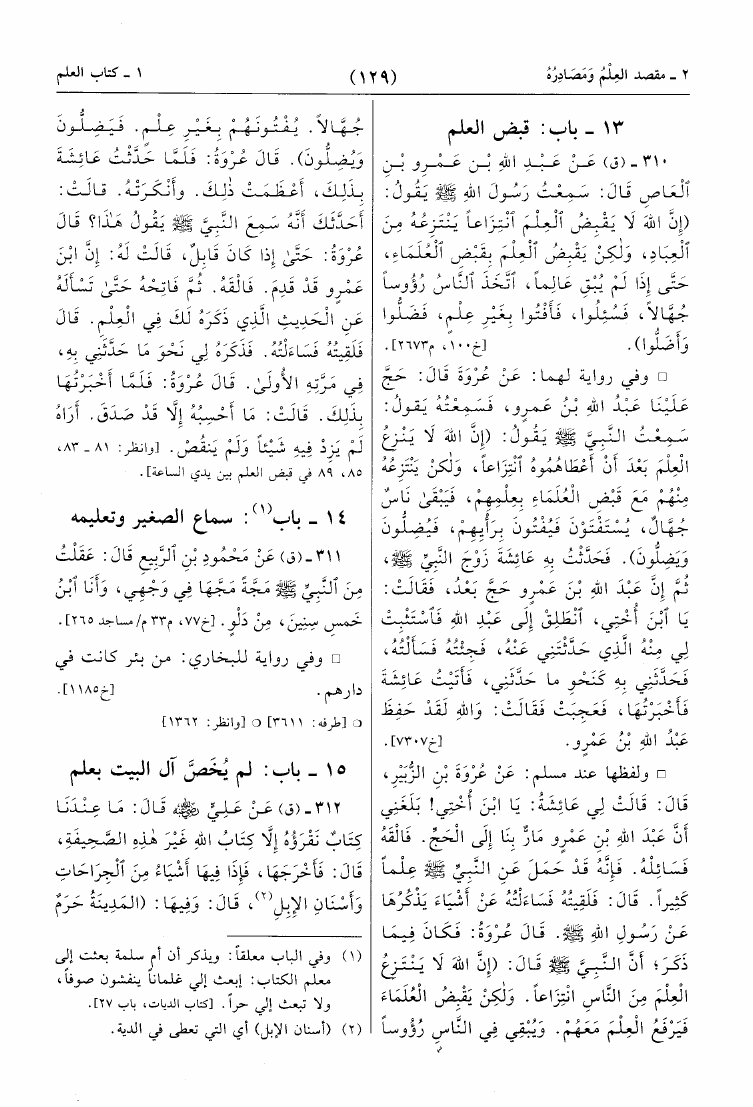 ٢ ـ مقصد العِلْمُ وَمَصَادِرُهُ
(١٢٩)
١ ـ كتاب العلم
١٣ ـ باب: قبض العلم
٣١٠ ـ (ق) عَنْ عَبْدِ اللهِ بْنِ عَمْرِو بْنِ
الْعَاصِ قَالَ: سَمِعْتُ رَسُولَ اللهِ ﷺ يَقُولُ:
(إِنَّ اللهَ لَا يَقْبِضُ الْعِلْمَ انْتِزَاعاً يَنْتَزِعُهُ مِنَ
الْعِبَادِ، وَلٰكِنْ يَقْبِضُ الْعِلْمَ بِقَبْضِ الْعُلَمَاءِ،
حَتَّى إِذَا لَمْ يُبْقِ عَالِماً، اتَّخَذَ النَّاسُ رُؤُوساً
جُهَّالاً، فَسُئِلُوا، فَأَفْتَوْا بِغَيْرِ عِلْمٍ، فَضَلُّوا
وَأَضَلُّوا). [خ١٠٠، م٢٦٧٣].
□ وفي رواية لهما: عَنْ عُرْوَةَ قَالَ: حَجَّ
عَلَيْنَا عَبْدُ اللهِ بْنُ عَمرٍو، فَسَمِعْتُهُ يَقولُ:
سَمِعْتُ النَّبِيَّ ﷺ يَقُولُ: (إِنَّ اللهَ لَا يَنْزِعُ
الْعِلْمَ بَعْدَ أَنْ أَعْطَاهُمُوهُ انْتِزَاعاً، وَلٰكِنْ يَنْتَزِعُهُ
مِنْهُمْ مَعَ قَبْضِ الْعُلَمَاءِ بِعِلْمِهِمْ، فَيَبْقَىٰ نَاسٌ
جُهَّالٌ، يُسْتَفْتَوْنَ فَيُفْتُونَ بِرَأْيِهِمْ، فَيُضِلُّونَ
وَيَضِلُّونَ). فَحَدَّثْتُ بِهِ عَائِشَةَ زَوْجَ النَّبِيِّ ﷺ،
ثُمَّ إِنَّ عَبْدَ اللهِ بْنَ عَمْرٍو حَجَّ بَعْدُ، فَقَالَتْ:
يَا ابْنَ أُخْتِي، انْطَلِقْ إِلَى عَبْدِ اللهِ فَاسْتَثْبِتْ
لِي مِنْهُ الَّذِي حَدَّثْتَنِي عَنْهُ، فَجِئْتُهُ فَسَأَلْتُهُ،
فَحَدَّثَنِي بِهِ كَنَحْوِ ما حَدَّثَنِي، فَأَتَيْتُ عَائِشَةَ
فَأَخْبَرْتُهَا، فَعَجِبَتْ فَقَالَتْ: وَاللهِ لَقَدْ حَفِظَ
عَبْدُ اللهِ بْنُ عَمْرٍو. [خ٧٣٠٧].
□ ولفظها عند مسلم: عَنْ عُرْوَةَ بْنِ الزُّبَيْرِ،
قَالَ: قَالَتْ لِي عَائِشَةُ: يَا ابْنَ أُخْتِي! بَلَغَنِي
أَنَّ عَبْدَ اللهِ بْنَ عَمرٍو مَارٌّ بِنَا إِلَى الْحَجِّ. فَالْقَهُ
فَسَائِلْهُ. فَإِنَّهُ قَدْ حَمَلَ عَنِ النَّبِيِّ ﷺ عِلْماً
كَثِيراً. قَالَ: فَلَقِيتُهُ فَسَاءَلْتُهُ عَنْ أَشْيَاءَ يَذْكُرُهَا
عَنْ رَسُولِ اللهِ ﷺ. قَالَ عُرْوَةُ: فَكَانَ فِيمَا
ذَكَرَ؛ أَنَّ النَّبِيَّ ﷺ قَالَ: (إِنَّ اللهَ لَا يَنْتَزِعُ
الْعِلْمَ مِنَ النَّاسِ انْتِزَاعاً. وَلٰكِنْ يَقْبِضُ الْعُلَمَاءَ
فَيَرْفَعُ الْعِلْمَ مَعَهُمْ. وَيُبْقِي فِي النَّاسِ رُؤُوساً
جُهَّالاً. يُفْتُونَهُمْ بِغَيْرِ عِلْمٍ. فَيَضِلُّونَ
وَيُضِلُّونَ). قَالَ عُرْوَةُ: فَلَمَّا حَدَّثْتُ عَائِشَةَ
بِذٰلِكَ، أَعْظَمَتْ ذٰلِكَ. وأَنْكَرَتْهُ. قالَتْ:
أَحَدَّثَكَ أَنَّهُ سَمِعَ النَّبِيَّ ﷺ يَقُولُ هٰذَا؟ قَالَ
عُرْوَةُ: حَتَّىٰ إِذا كَانَ قَابِلٌ، قَالَتْ لَهُ: إِنَّ ابْنَ
عَمْرٍو قَدْ قَدِمَ. فَالْقَهُ. ثُمَّ فَاتِحْهُ حَتَّىٰ تَسْأَلَهُ
عَنِ الْحَدِيثِ الَّذِي ذَكَرَهُ لَكَ فِي الْعِلْمِ. قَالَ
فَلَقِيتُهُ فَسَاءَلْتُهُ. فَذَكَرَهُ لِي نَحْوَ مَا حَدَّثَنِي بِهِ،
فِي مَرَّتِهِ الأُولَىٰ. قَالَ عُرْوَةُ: فَلَمَّا أَخْبَرْتُهَا
بِذٰلِكَ. قَالَتْ: مَا أَحْسِبُهُ إِلَّا قَدْ صَدَقَ. أَرَاهُ
لَمْ يَزِدْ فِيهِ شَيْئاً وَلَمْ يَنقُصْ. [وانظر: ٨١ ـ ٨٣،
٨٥، ٨٩ في قبض العلم بين يدي الساعة].
١٤ ـ باب(١): سماع الصغير وتعليمه
٣١١ ـ (ق) عَنْ مَحْمُودِ بْنِ الرَّبِيعِ قَالَ: عَقَلْتُ
مِنَ النَّبِيِّ ﷺ مَجَّةً مَجَّهَا فِي وَجْهِي، وَأَنَا ابْنُ
خَمسِ سِنِينَ، مِنْ دَلْوٍ. [خ٧٧، م٣٣ م/مساجد ٢٦٥].
□ وفي رواية للبخاري: من بئر كانت في
دارهم. [خ١١٨٥].
○ [طرفه: ٣٦١١] ○ [وانظر: ١٣٦٢]
١٥ ـ باب: لم يُخَصَّ آل البيت بعلم
٣١٢ ـ (ق) عَنْ عَلِيٍّ رضي الله عنه قَالَ: مَا عِنْدَنَا
كِتَابٌ نَقْرَؤُهُ إِلَّا كِتَابُ اللهِ غَيْرَ هٰذِهِ الصَّحِيفَةِ،
قَالَ: فَأَخْرَجَهَا، فَإِذَا فِيهَا أَشْيَاءُ مِنَ الْجِرَاحَاتِ
وَأَسْنَانِ الإِبِلِ(٢)، قَالَ: وَفِيهَا: (الْمَدِينَةُ حَرَمٌ
(١) وفي الباب معلقاً: ويذكر أن أم سلمة بعثت إلى
معلم الكتاب: إبعث إلي غلماناً ينفشون صوفاً،
ولا تبعث إلي حراً. [كتاب الديات، باب ٢٧].
(٢) (أسنان الإبل) أي التي تعطى في الدية.